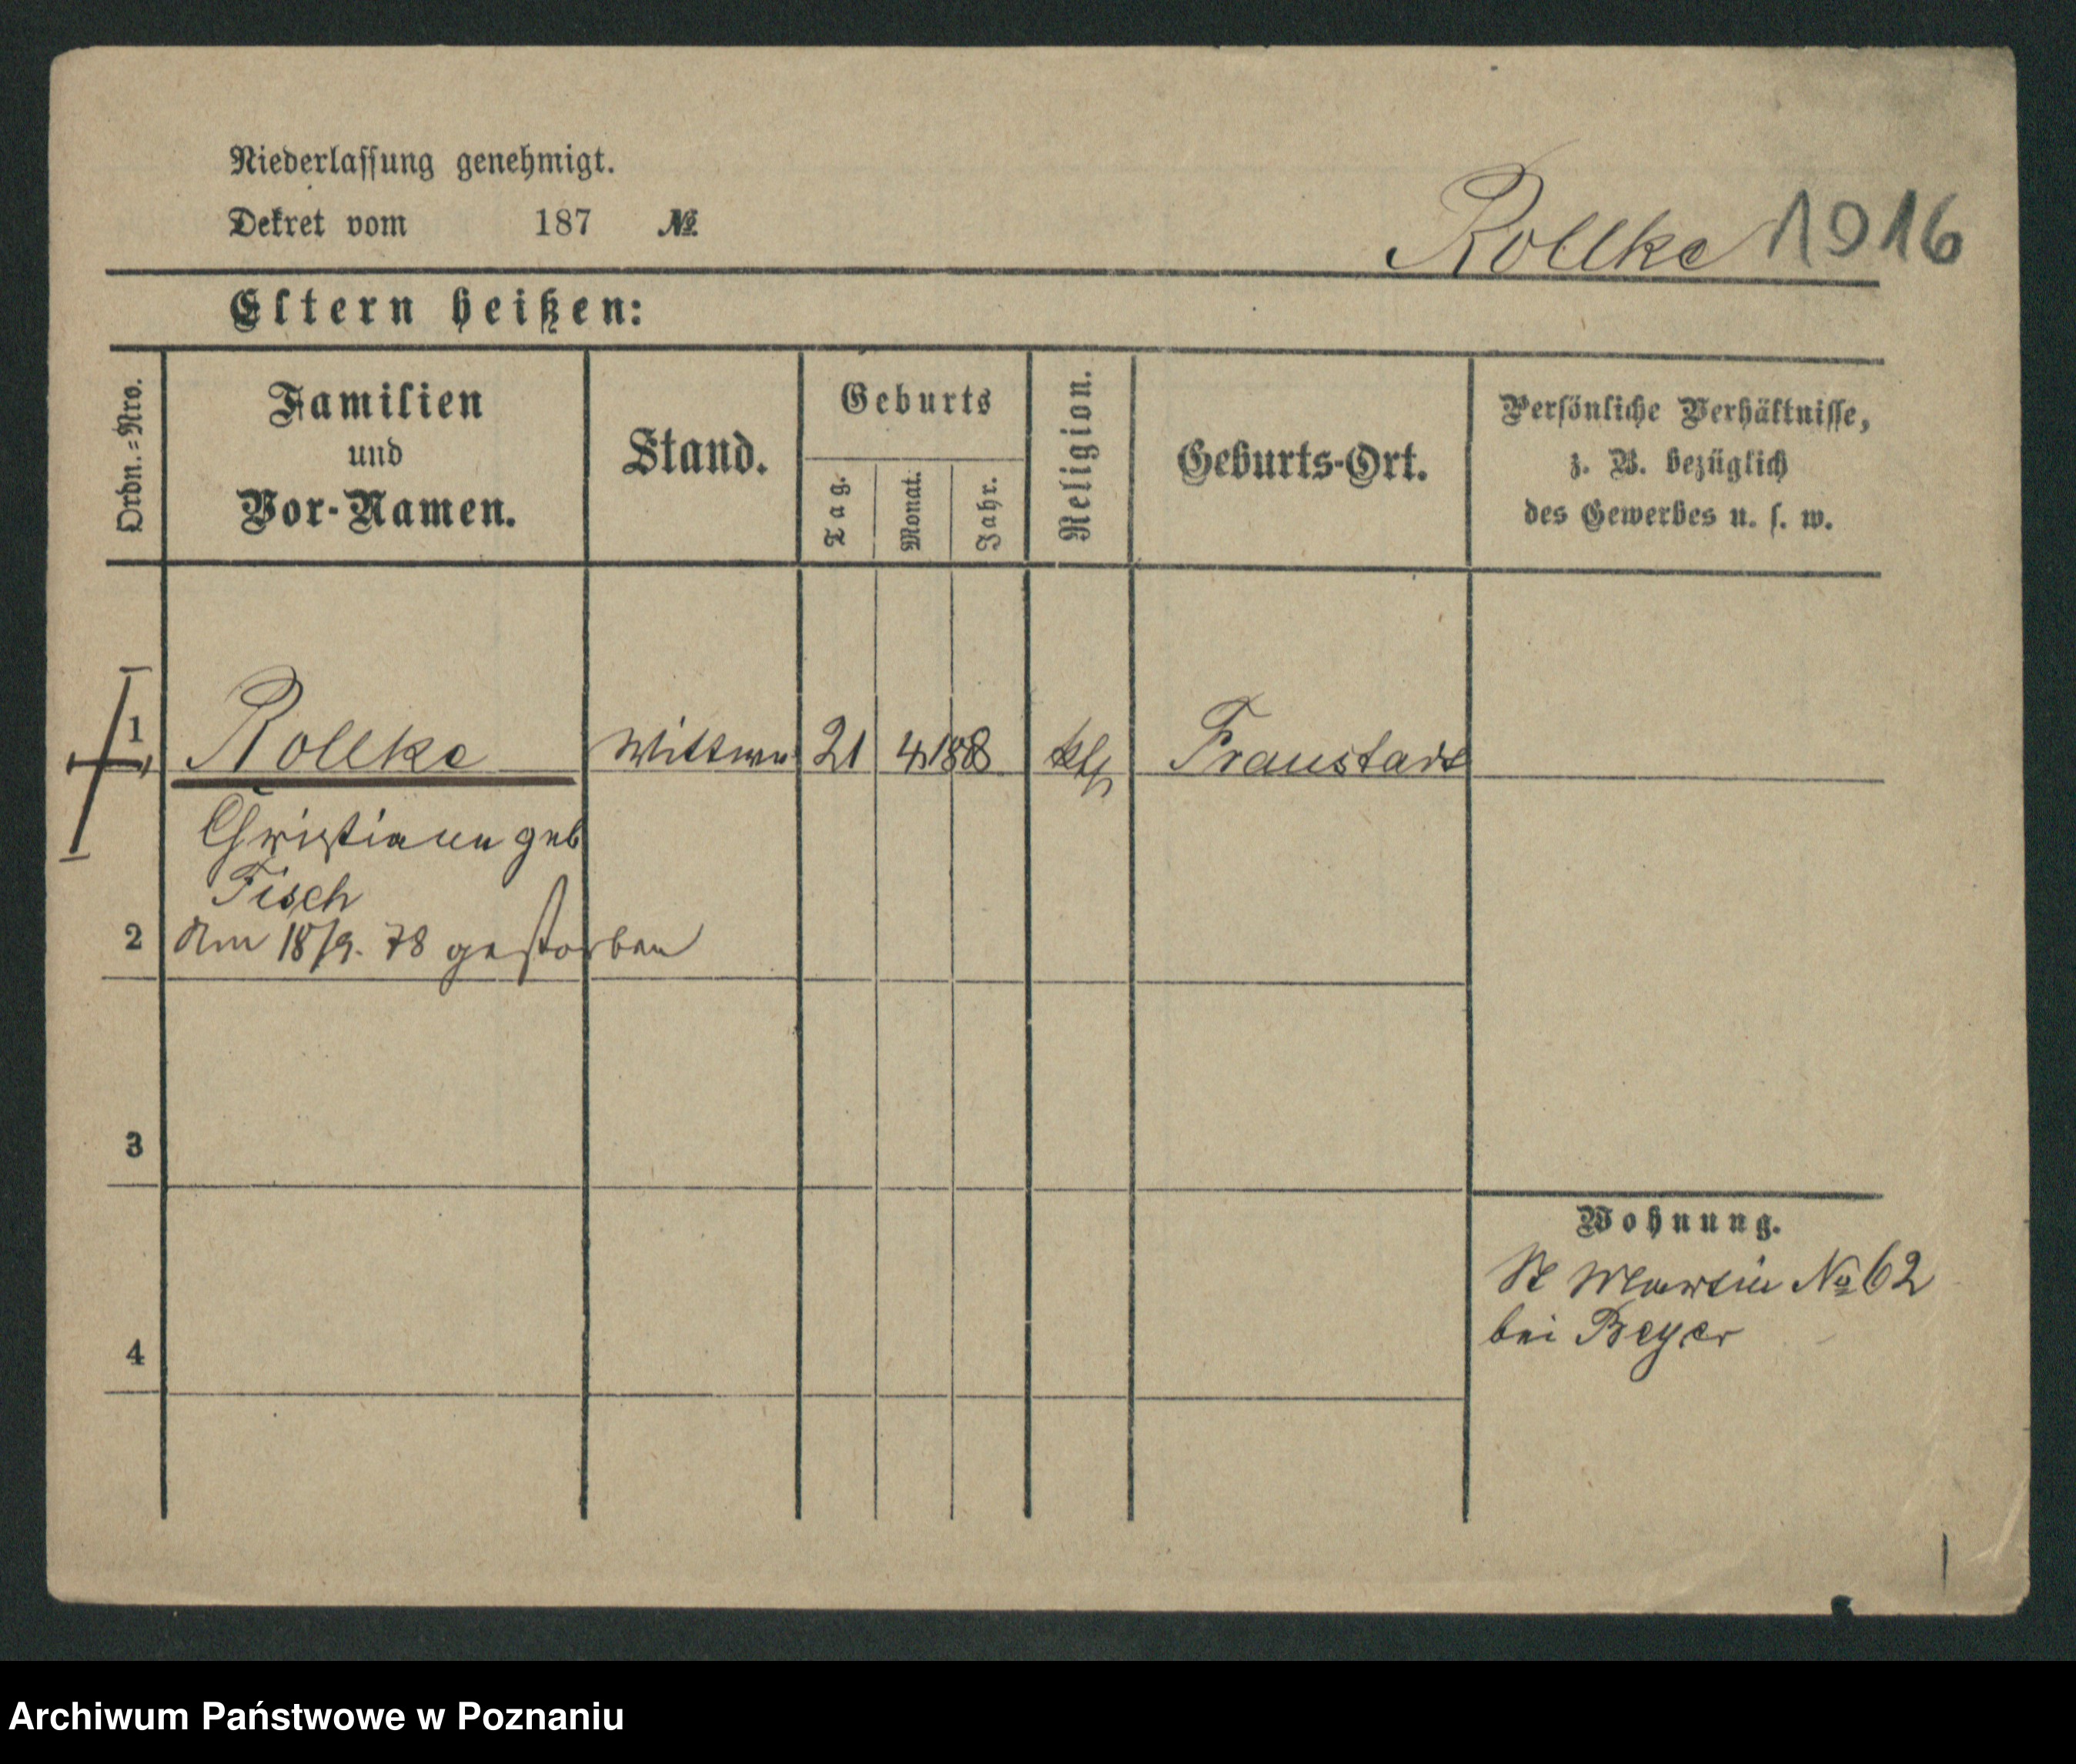 Niederlassung genehmigt.
Dekret vom 187 №
Rollke 1916
Eltern heißen:
Ordn.-Nro.
Familien und Vor-Namen.
Stand.
Geburts
Tag.
Monat.
Jahr.
Religion.
Geburts-Ort.
Persönliche Verhältnisse,
z. B. bezüglich
des Gewerbes u. s. w.
1 Rollke Wittwe 21 4 188 Fraustadt
Christiane geb
Fisch
2 Am 18/9. 78 gestorben
3
Wohnung.
St Martin № 62
bei Beyer
4
Archiwum Państwowe w Poznaniu